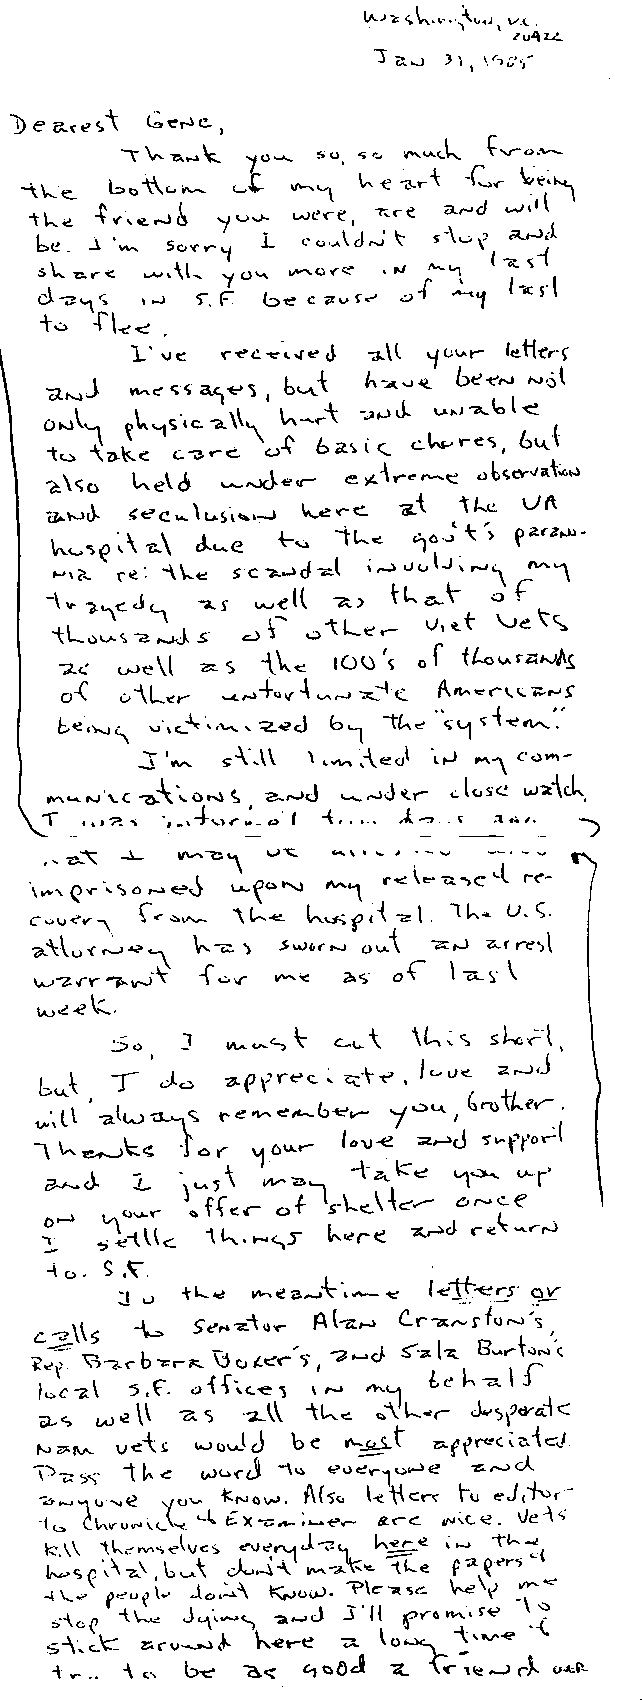 Washington, D.C.
20422
Jan 31, 1985
Dearest Gene,
Thank you so, so much from
the bottom of my heart for being
the friend you were, are and will
be. I'm sorry I couldn't stop and
share with you more in my last
days in S.F. because of my last
to flee.
I've received all your letters
and messages, but have been not
only physically hurt and unable
to take care of basic chores, but
also held under extreme observation
and seculusion here at the VA
hospital due to the gov't's paran-
nia re: the scandal involving my
tragedy as well as that of
thousands of other Viet Vets
as well as the 100's of thousands
of other unfortunate Americans
being victimized by the "system."
I'm still limited in my com-
munications, and under close watch.
I was
that I may be
imprisoned upon my released re-
covery from the hospital. The U.S.
attorney has sworn out an arrest
warrant for me as of last
week.
So, I must cut this short,
but, I do appreciate, love and
will always remember you, brother.
Thanks for your love and support
and I just may take you up
on your offer of shelter once
I settle things here and return
to S.F.
In the meantime letters or
calls to Senator Alan Cranston's,
Rep. Barbara Boxer's, and Sala Burton's
local S.F. offices in my behalf
as well as all the other desperate
Nam vets would be most appreciated.
Pass the word to everyone and
anyone you know. Also letters to editor
to Chronicle & Examiner are nice. Vets
kill themselves everyday here in the
hospital, but don't make the papers &
the people don't know. Please help me
stop the dying and I'll promise to
stick around here a long time &
try to be as good a friend